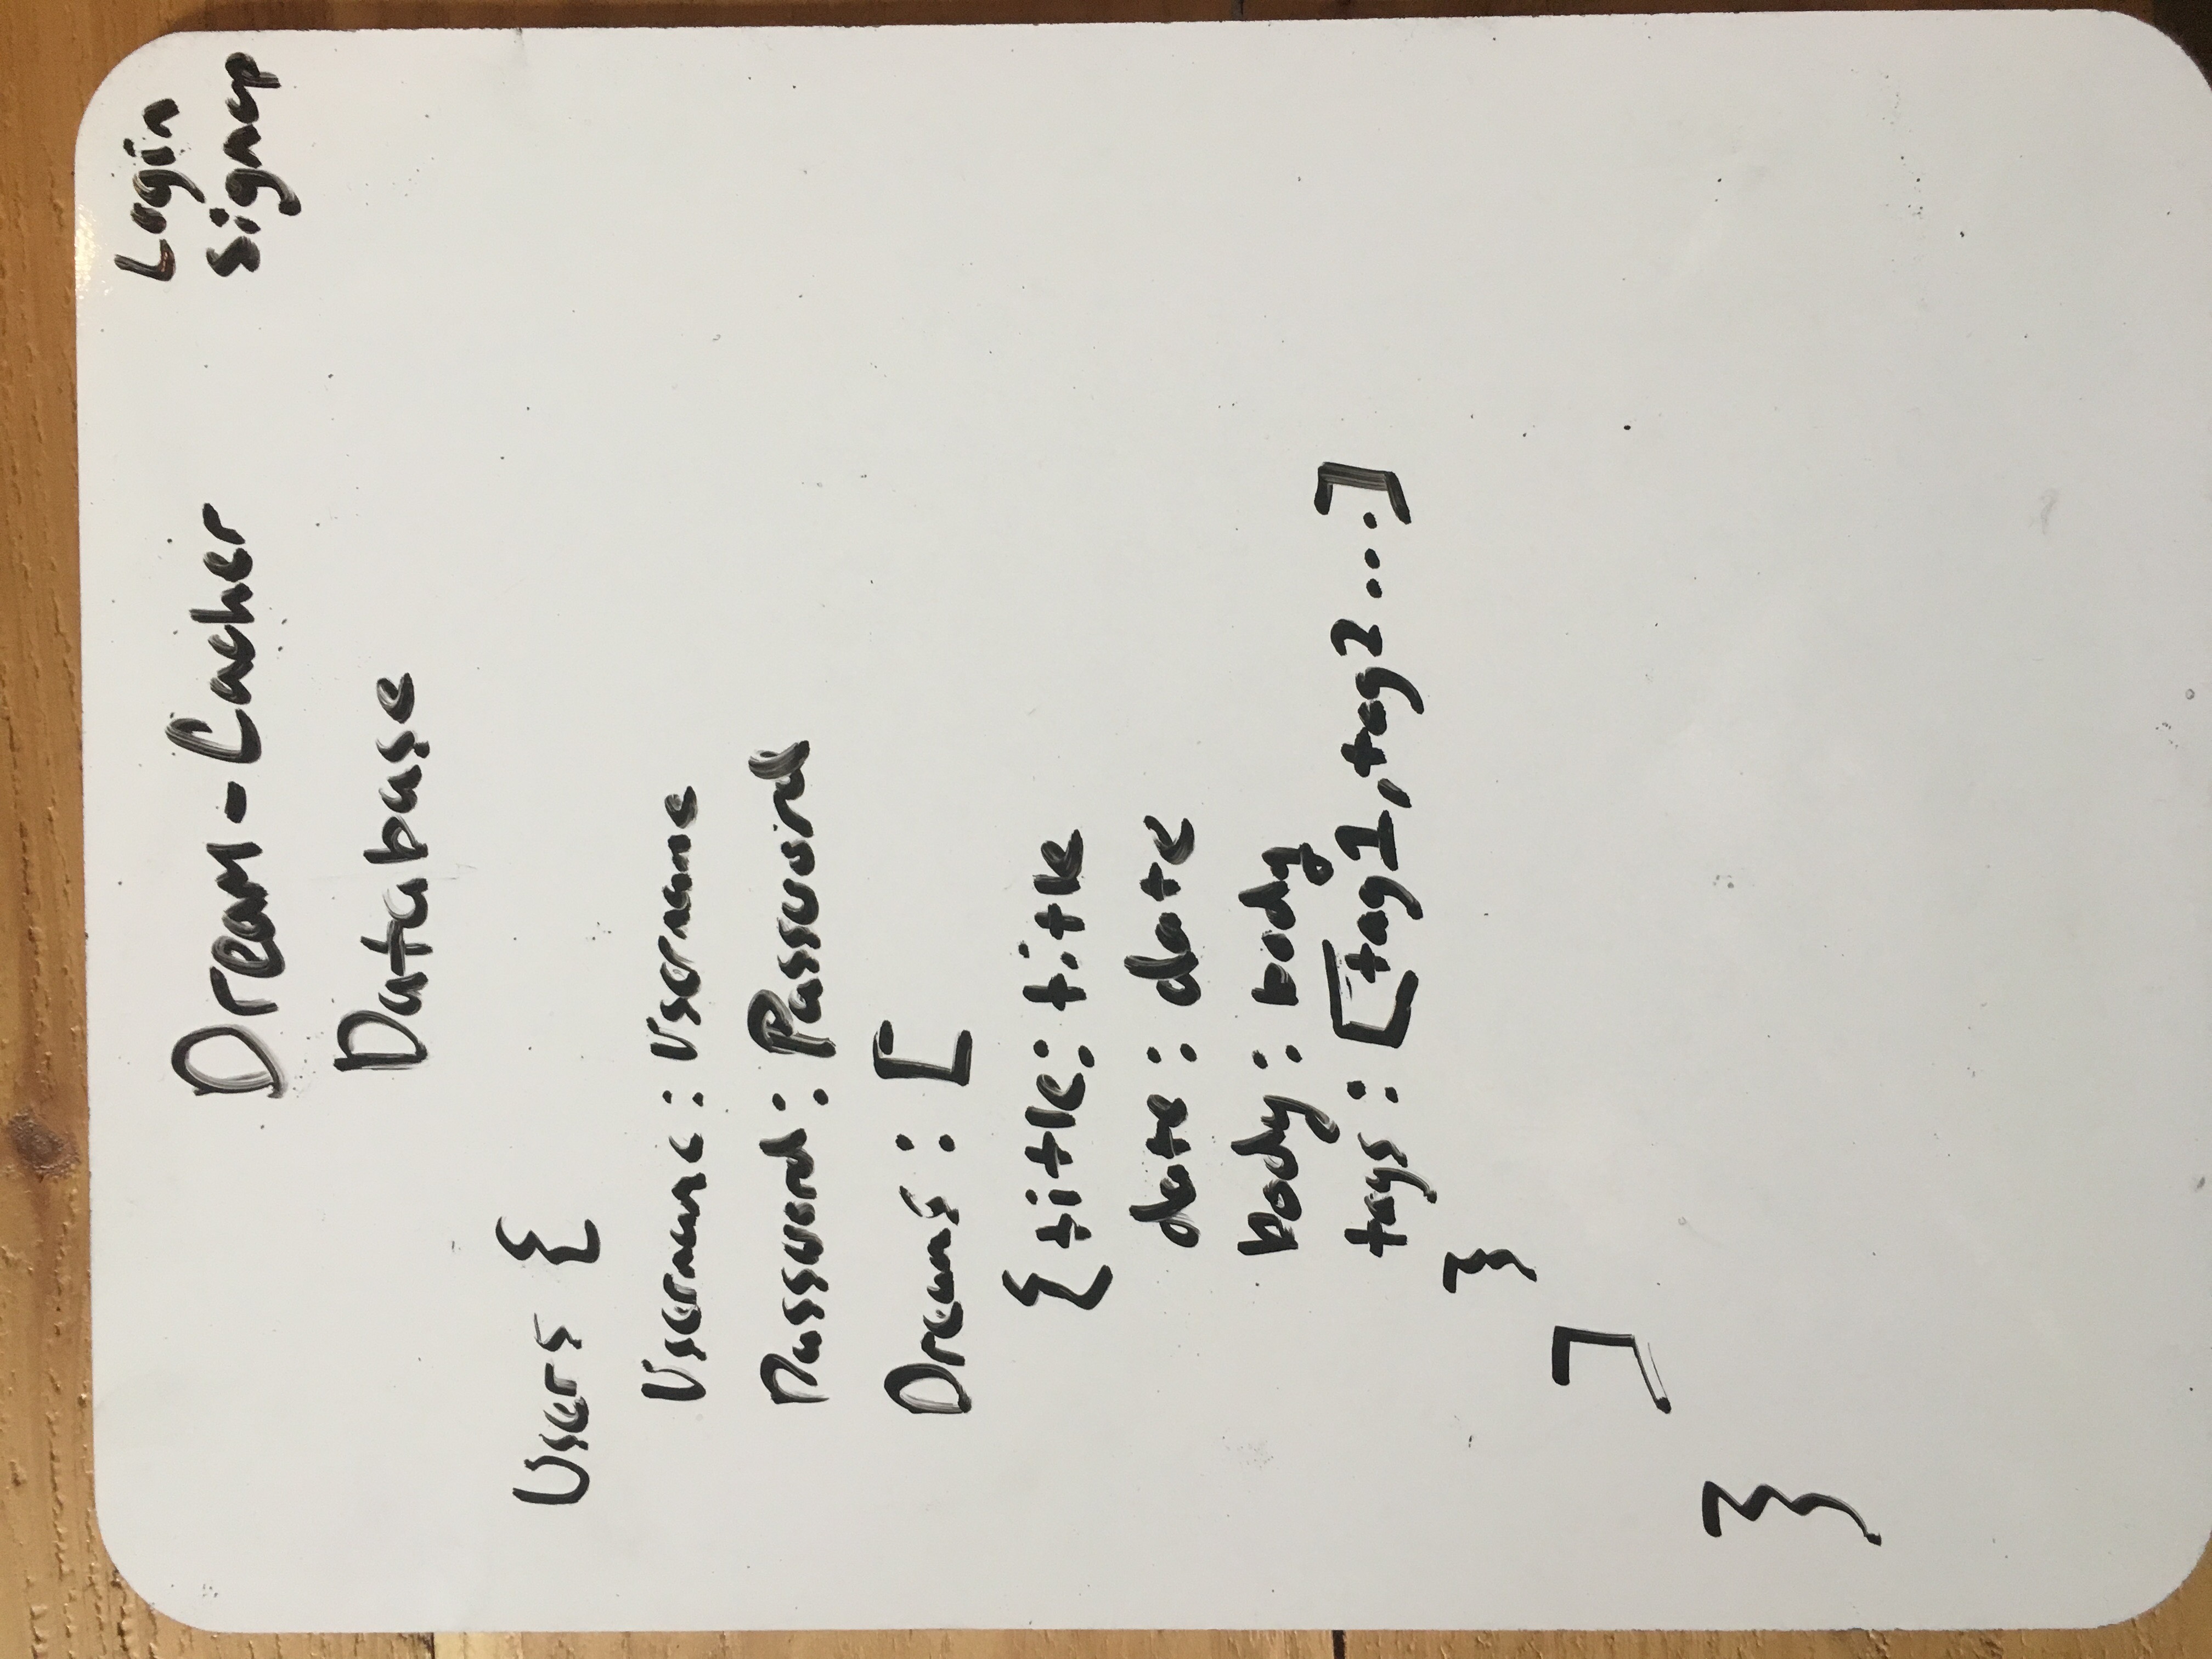 Login
Signup
Dream-Cacher
Database
Users {
Username : Username
Password : Password
Dreams : [
{ title : title
date : date
body : body
tags : [tag1, tag2 ...]
}
]
}